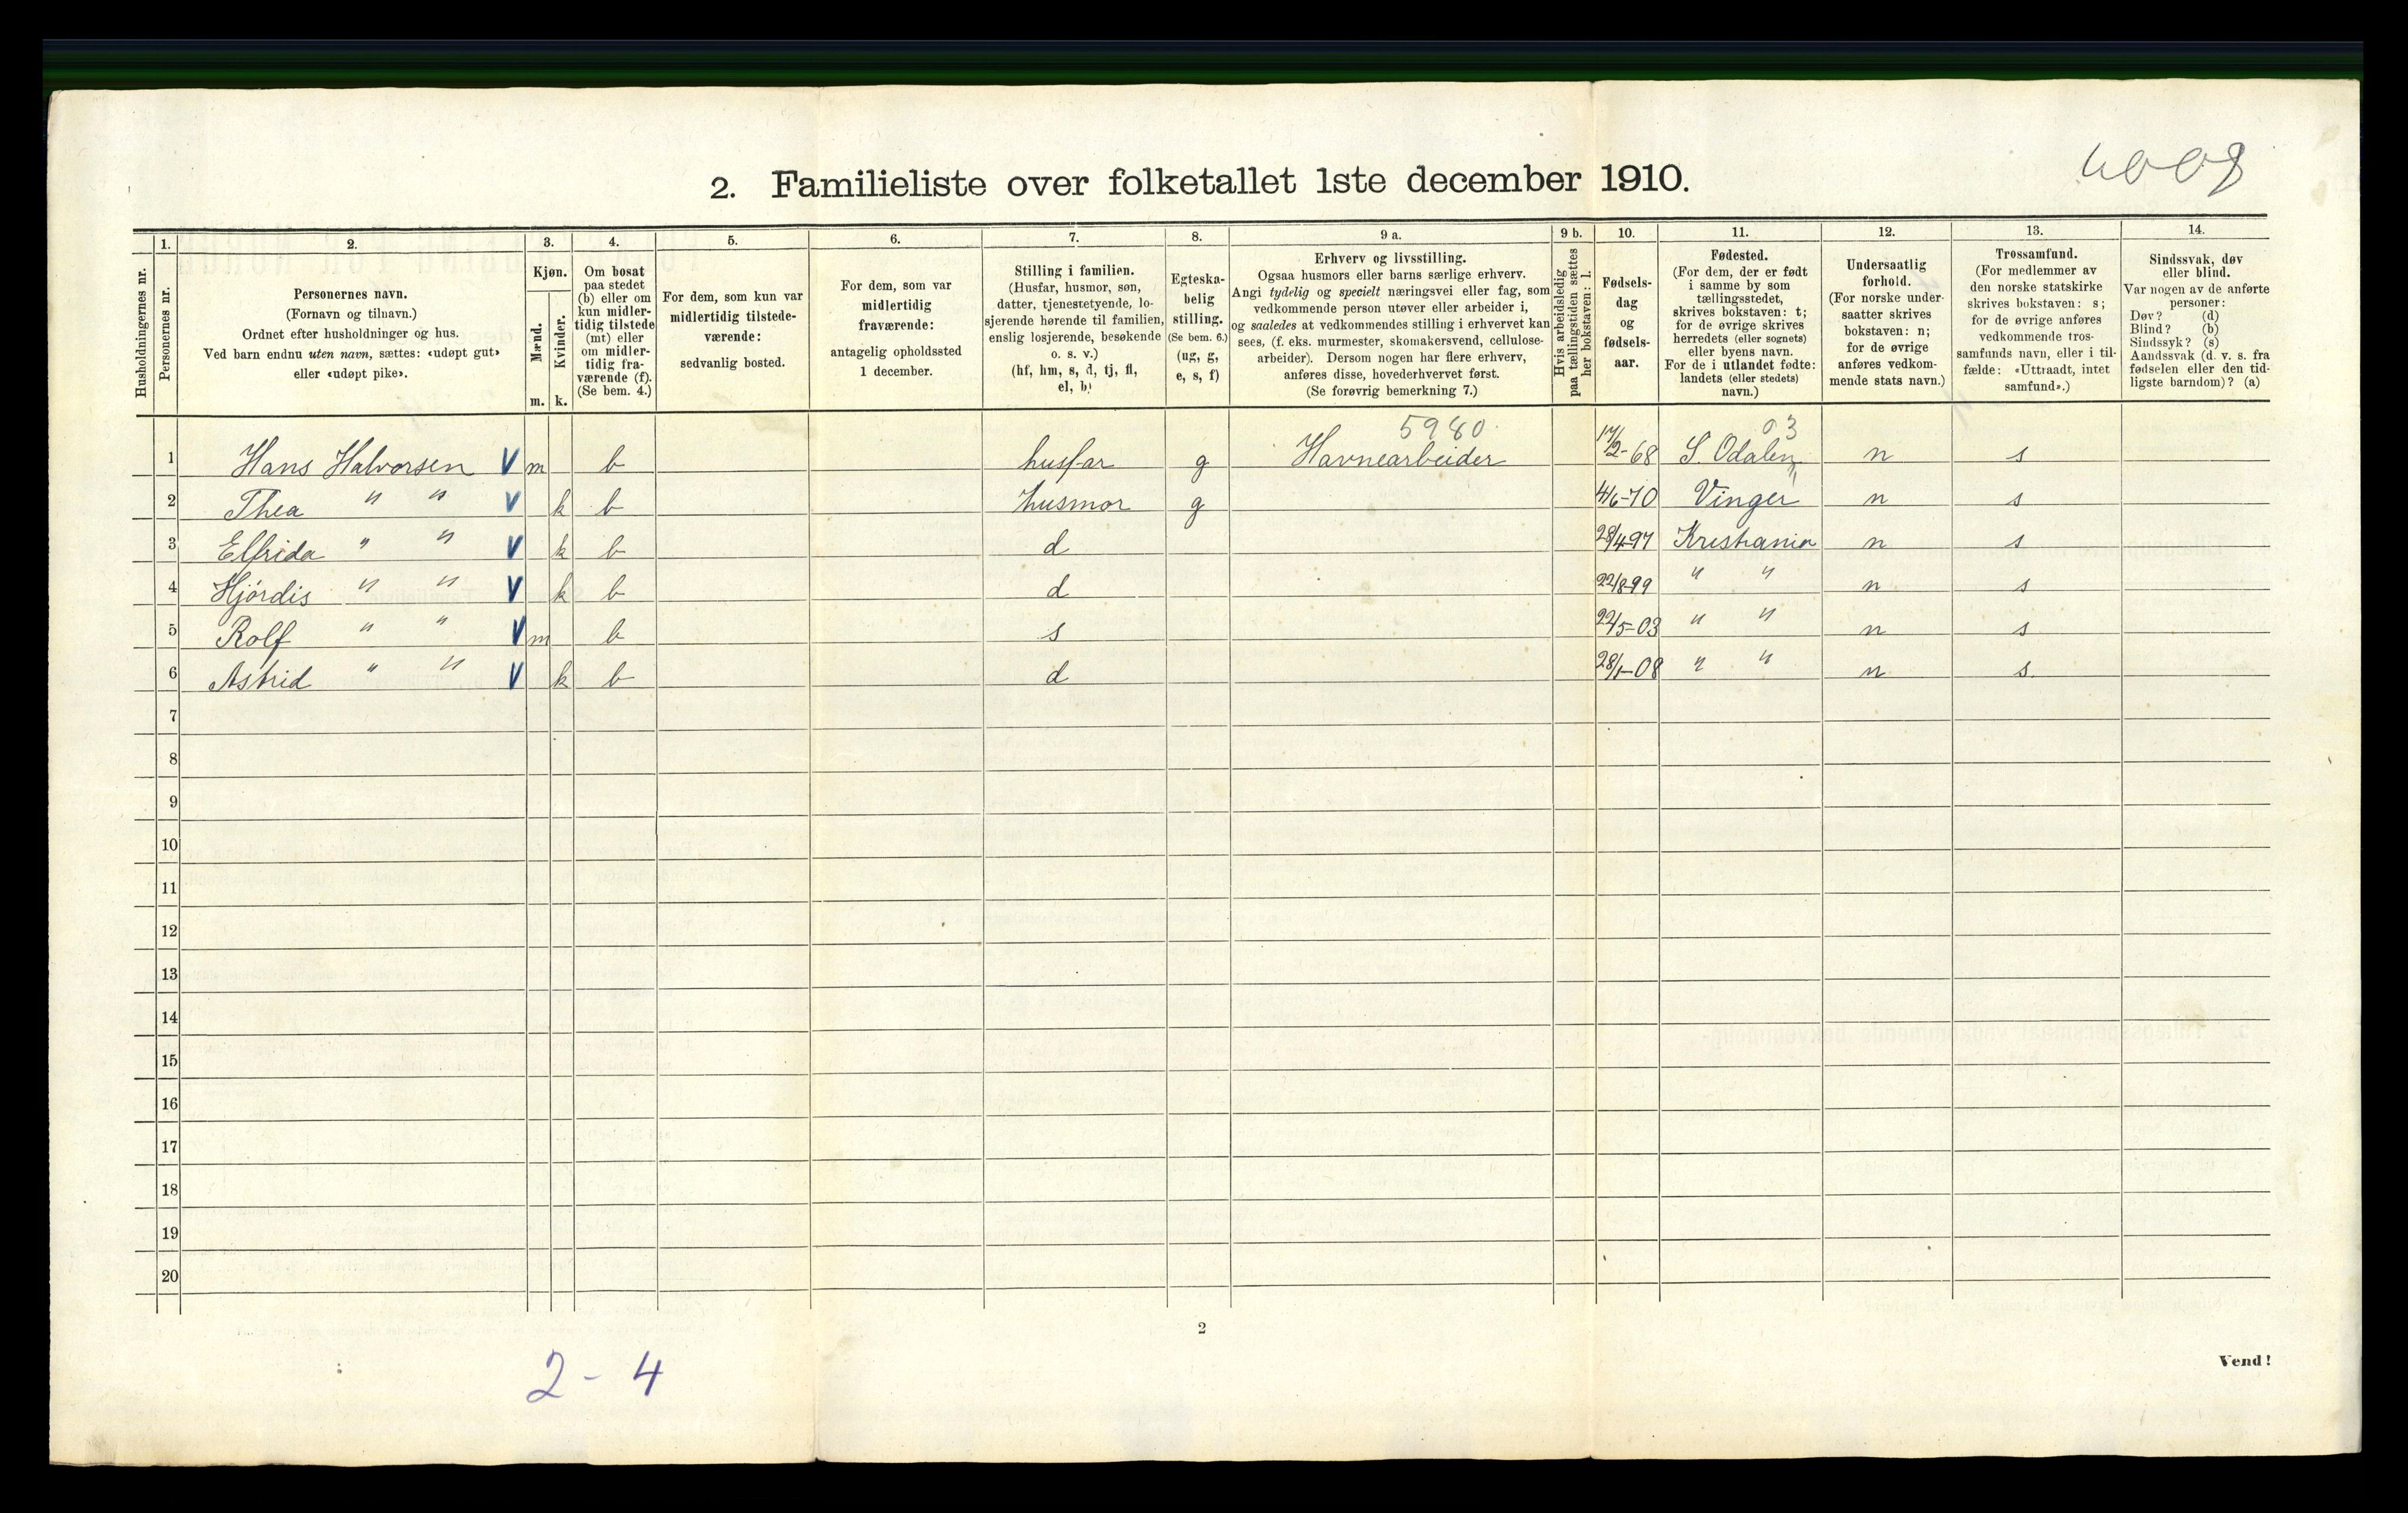 4008
2. Familieliste over folketallet 1ste december 1910.
Husholdningernes nr.
1. Personernes nr.
2.
Personernes navn.
(Fornavn og tilnavn.)
Ordnet efter husholdninger og hus.
Ved barn endnu uten navn, sættes: «udøpt gut»
eller «udøpt pike».
3.
Kjøn.
Mænd. Kvinder.
m. k.
4.
Om bosat
paa stedet
(b) eller om
kun midler-
tidig tilstede
(mt) eller
om midler-
tidig fra-
værende (f).
(Se bem. 4.)
5.
For dem, som kun var
midlertidig tilstede-
værende:
sedvanlig bosted.
6.
For dem, som var
midlertidig
fraværende:
antagelig opholdssted
1 december.
7.
Stilling i familien.
(Husfar, husmor, søn,
datter, tjenestetyende, lo-
sjerende hørende til familien,
enslig losjerende, besøkende
o. s. v.)
(hf, hm, s, d, tj, fl,
el, b)
8.
Egteska-
belig
stilling.
(Se bem. 6.)
(ug, g,
e, s, f)
9 a.
Erhverv og livsstilling.
Ogsaa husmors eller barns særlige erhverv.
Angi tydelig og specielt næringsvei eller fag, som
vedkommende person utøver eller arbeider i,
og saaledes at vedkommendes stilling i erhvervet kan
sees, (f. eks. murmester, skomakersvend, cellulose-
arbeider). Dersom nogen har flere erhverv,
anføres disse, hovederhvervet først.
(Se forøvrig bemerkning 7.)
9 b.
Hvis arbeidsledig
paa tællingstiden sættes
her bokstaven: l.
10.
Fødsels-
dag
og
fødsels-
aar.
11.
Fødested.
(For dem, der er født
i samme by som
tællingsstedet,
skrives bokstaven: t;
for de øvrige skrives
herredets (eller sognets)
eller byens navn.
For de i utlandet fødte:
landets (eller stedets)
navn.)
12.
Undersaatlig
forhold.
(For norske under-
saatter skrives
bokstaven: n;
for de øvrige
anføres vedkom-
mende stats navn.)
13.
Trossamfund.
(For medlemmer av
den norske statskirke
skrives bokstaven: s;
for de øvrige anføres
vedkommende tros-
samfunds navn, eller i til-
fælde: «Uttraadt, intet
samfund».)
14.
Sindssvak, døv
eller blind.
Var nogen av de anførte
personer:
Døv? (d)
Blind? (b)
Sindssyk? (s)
Aandssvak (d. v. s. fra
fødselen eller den tid-
ligste barndom)? (a)
5980 03
1 Hans Halvorsen V m b husfar g Havnearbeider 17/2-68 S. Odalen n s
2 Thea " " V k b husmor g 4/6-70 Vinger " n s
3 Elfrida " " V k b d 28/4-97 Kristiania n s
4 Hjórdis " " V k b d 22/8-99 " " n s
5 Rolf " " V m b s 22/5-03 " " n s
6 Astrid " " V k b d 28/1-08 " " n s.
7
8
9
10
11
12
13
14
15
16
17
18
19
20
2
Vend!
2 - 4